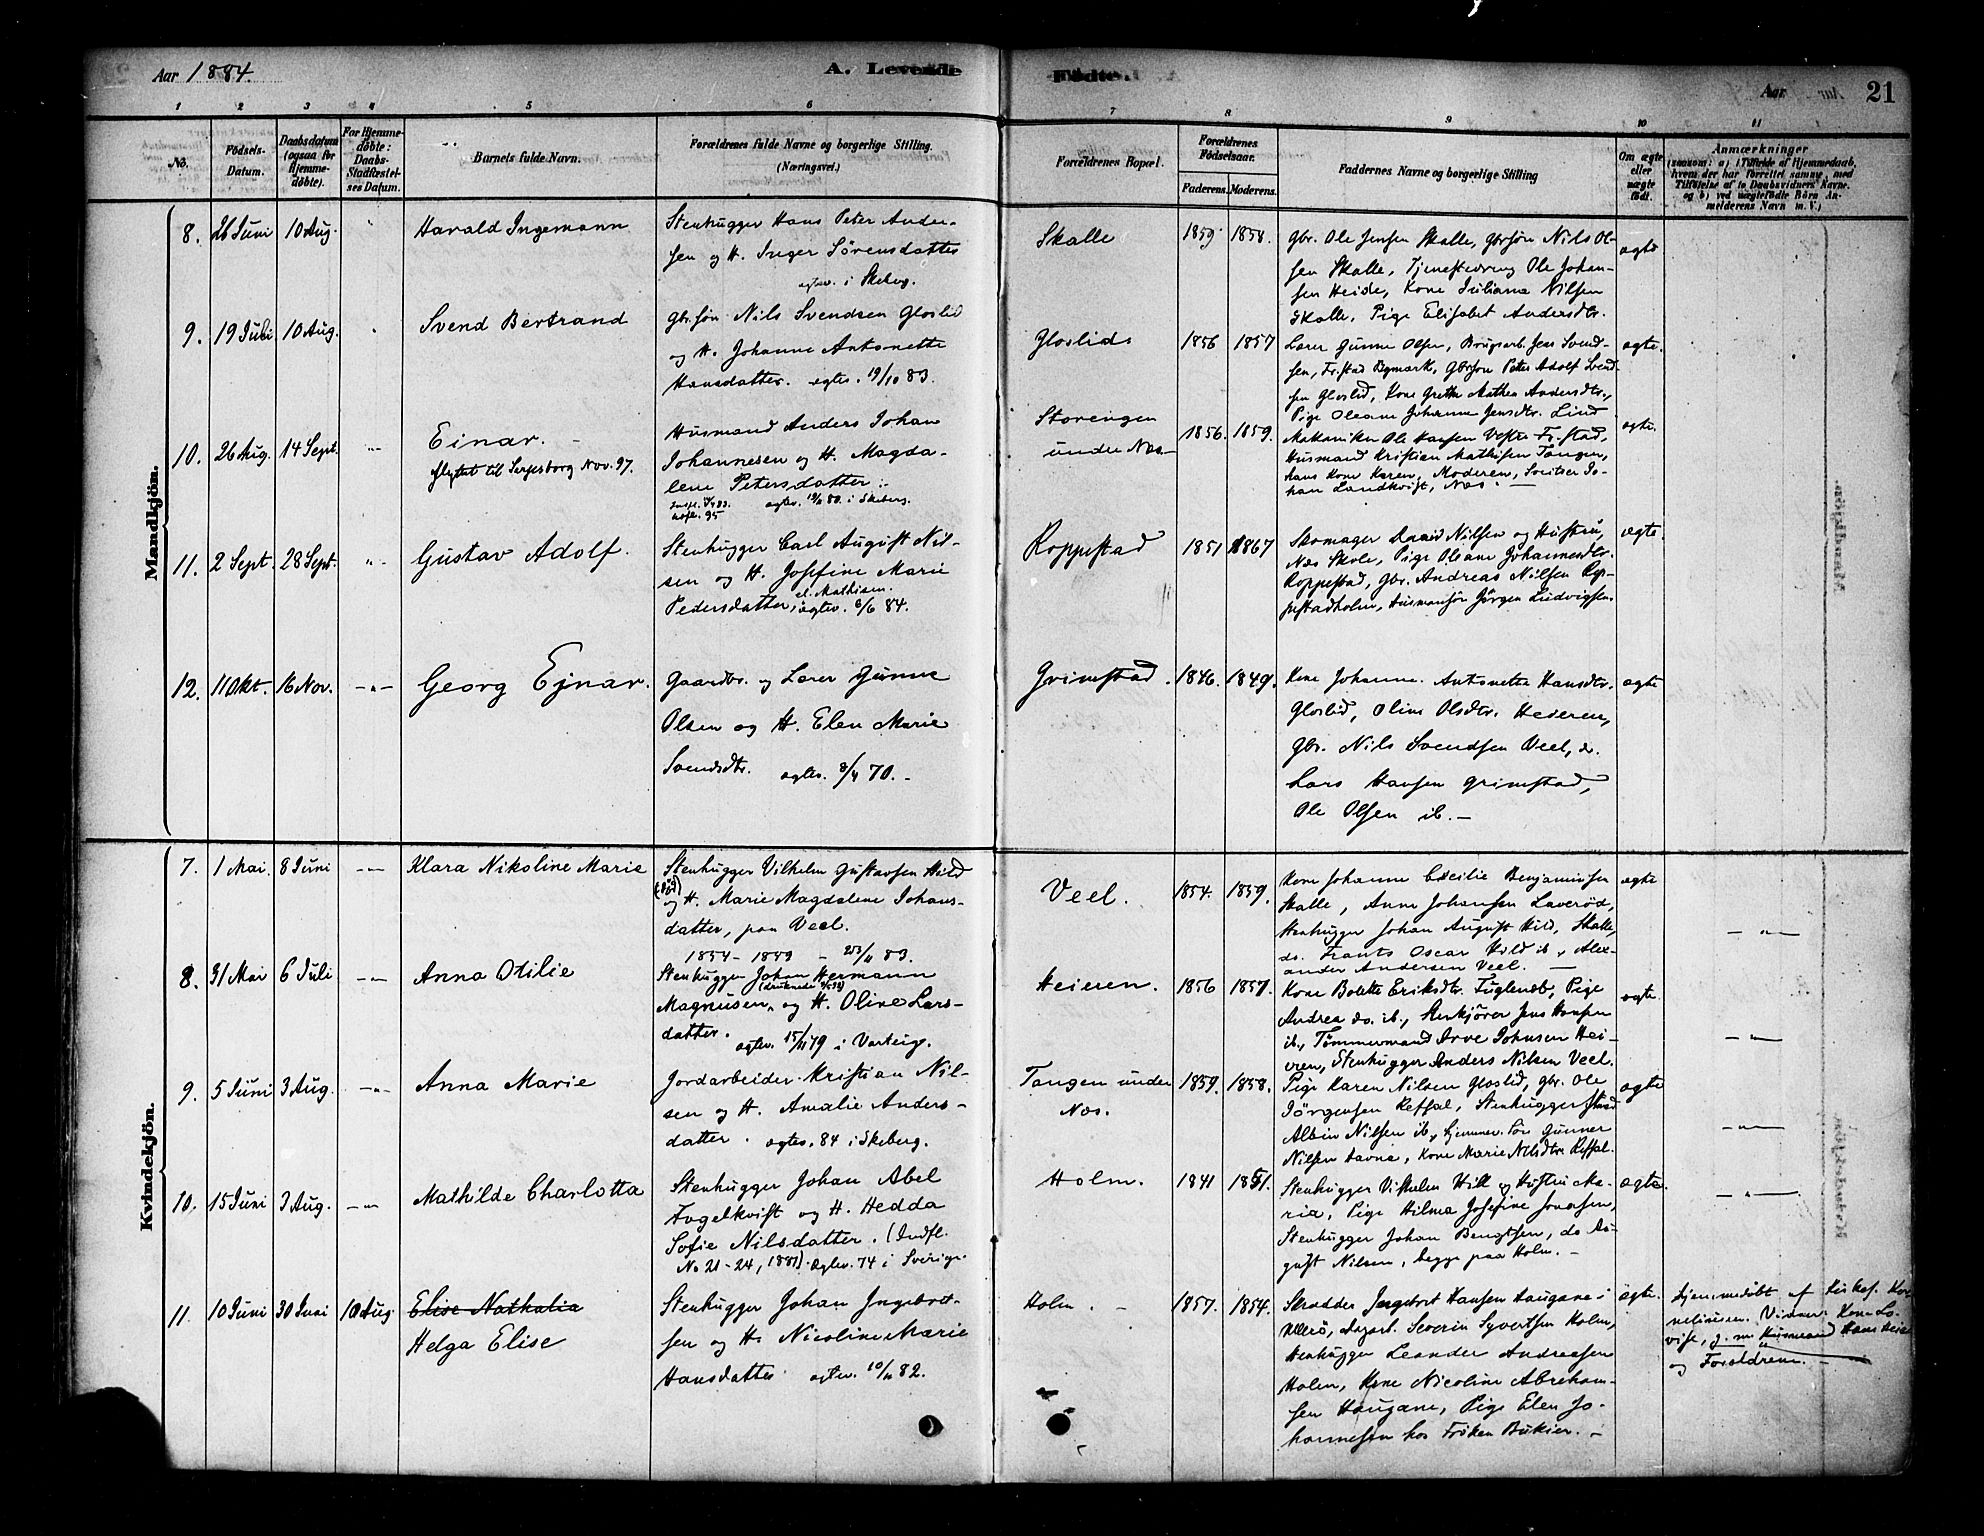 Aar 1884.
A. Levende
Fødte.
Aar
21
1 2 3 4 5 6 7 8 9 10 11
No.
Fødsels-Datum.
Daabsdatum (ogsaa for Hjemmedøbte).
For Hjemmedøbte: Daabs-Stadfæstelses Datum.
Barnets fulde Navn.
Forældrenes fulde Navne og borgerlige Stilling.
(Næringsvei.)
Forældrenes Bopæl.
Forældrenes Fødselsaar.
Faderens. Moderens.
Faddernes Navne og borgerlige Stilling
Om ægte eller uægte født.
Anmærkninger
(saasom: a) i Tilfælde af Hjemmedaab, hvem der har forrettet samme, med Tilføielse af to Daabsvidners Navne. og b) ved uægtefødte Børn Anmelderens Navn m. V.)
Mandkjön.
8. 26 Juni 10 Aug. Harald Ingemann
Stenhugger Hans Peter Ander-
sen og H. Inger Sørensdatter
egtev. i Skeberg.
Skalle 1859 1858.
Gbr. Ole Jensen Skalle, Gbrsøn Nils Ol-
sen Skalle, Tjenestedreng Ole Johan-
sen Heide, Kone Juliane Nilsen
Skalle, Pige Elisabet Andersdtr.
egte
9. 19 Juli 10 Aug. Svend Bertrand
Gbr.søn Nils Svendsen Gloslid
og H. Johanne Antonette
Hansdatter. egtev. 19/10 83.
Gloslid 1856 1857
Lærer Gunne Olsen, Brugsarb. Jens Svend-
sen, Fr.stad Bymark, Gbrsøn Peter Adolf Svend-
sen Gloslid, Kone Grethe Mathea Andersdtr.,
Pige Oleane Johanne Jensdtr. Lind
egte.
10. 26 Aug. 14 Sept. Einar.
flyttet til Sarpsborg Nov. 97.
Husmand Anders Johan
Johannesen og H. Magda-
lene Petersdatter
egtev. i Skeberg.
Storengen
under Næs 1856. 1859.
Mekaniker Ole Hansen Vestre Fr.stad,
Husmand Kristian Mathisen Tangen,
hans Kone Karen, Moderen, Jo-
han Landkvist, Næs.
egte.
11. 2 Sept. 28 Sept. Gustav Adolf.
Stenhugger Carl August Nil-
sen og H. Josefine Marie
el. Mathisen.
Pedersdatter, egtev. 6/6 84.
Roppestad 1851 1867
Skomager Nilsen og Hustru,
Næs Skole, Pige Oleane Johannesdtr.
Roppestad, Gbr. Andreas Nilsen Rop-
pestadholm, Husmansøn Jørgen Ludvigsen
egte
12. 11 Okt. 16 Nov. Georg Ejnar.
Gaardbr. og Lærer Gunne
Olsen og H. Elen Marie
Svendsdtr. egtev. 8/4 70.
Grimstad. 1846. 1849.
Kone Johanne Antonette Hansdtr.
Gloslid, Oline Olsdtr. Hederen,
Gbr. Nils Svendsen Veel, do.
Lars Hansen Grimstad,
Ole Olsen ib.
egte
Kvindekjön.
7. 1 Mai 8 Juni Klara Nikoline Marie
Stenhugger Vilhelm Gustavsen Hild
(død)
og H. Marie Magdalene Johans-
datter, paa Veel.
1854 - 1859 - 23/11 83.
Veel. 1854. 1859.
Kone Johanne Cecilie Benjaminsen
Skalle, Anne Johansen Laverød,
Stenhugger Johan August Hild, Skalle,
do. Frants Oscar Hild ib., Alex-
ander Andersen Veel.
egte
8. 31 Mai 6 Juli Anna Otilie
Stenhugger Johan Hermann
Magnusen, og H. Oline Lars-
datter. egtev. 15/11 79 i Varteig.
Heieren. 1856 1857.
Kone Bolette Eriksdtr. Fuglevik, Pige
Andrea do. ib., Stenkjører Jens Hansen
ib., Tømmermand Arve Johnsen Hei-
eren, Stenhugger Anders Nilsen Veel.
egte.
9. 5 Juni 3 Aug. Anna Marie
Jordarbeider Kristian Nil-
sen og H. Amalie Anders-
datter. egtev. 84 i Skeberg.
Tangen under
Næs. 1859. 1858.
Pige Karen Nilsen Gloslid, Gbr. Ole
Jørgensen Reffal, Stenhugger
Albin Nilsen ib., Gunner
Nilsen Havna, Kone Marie Nilsdtr. Reffal.
egte
10. 15 Juni 3 Aug. Mathilde Charlotta
Stenhugger Johan Abel
Fogelkvist og H. Hedda
Sofie Nilsdatter. (Indfl.
No 21-24, 1881). egtev. 74 i Sverige.
Holm. 1841 1851.
Stenhugger Vilhelm Hill og Hustru Ma-
ria, Pige Hilma Josefine Jonasen,
Stenhugger Johan Bengtsen, do. Au-
gust Nilsen, begge paa Holm.
egte.
11. 10 Juni 30 Juni 10 Aug. Elise Nathalia
Helga Elise
Stenhugger Johan Ingebret-
sen og H. Nicoline Marie
Hansdatter egtev. 10/11 82.
Holm. 1857. 1854.
Skrædder Ingebret Hansen Haugane i
Ullerø, Dagarb. Severin Syvertsen Holm,
Stenhugger Leander Andreasen
Holm, Kone Nicoline Abraham-
sen Haugane, Pige Elen Jo-
hannesen hos Frøken Bukier.
egte.
Hjemmedøbt af Kor-
neliussen. Vidner: Kone Lo-
vise, Husmand Hans Heie
og Forældrene.